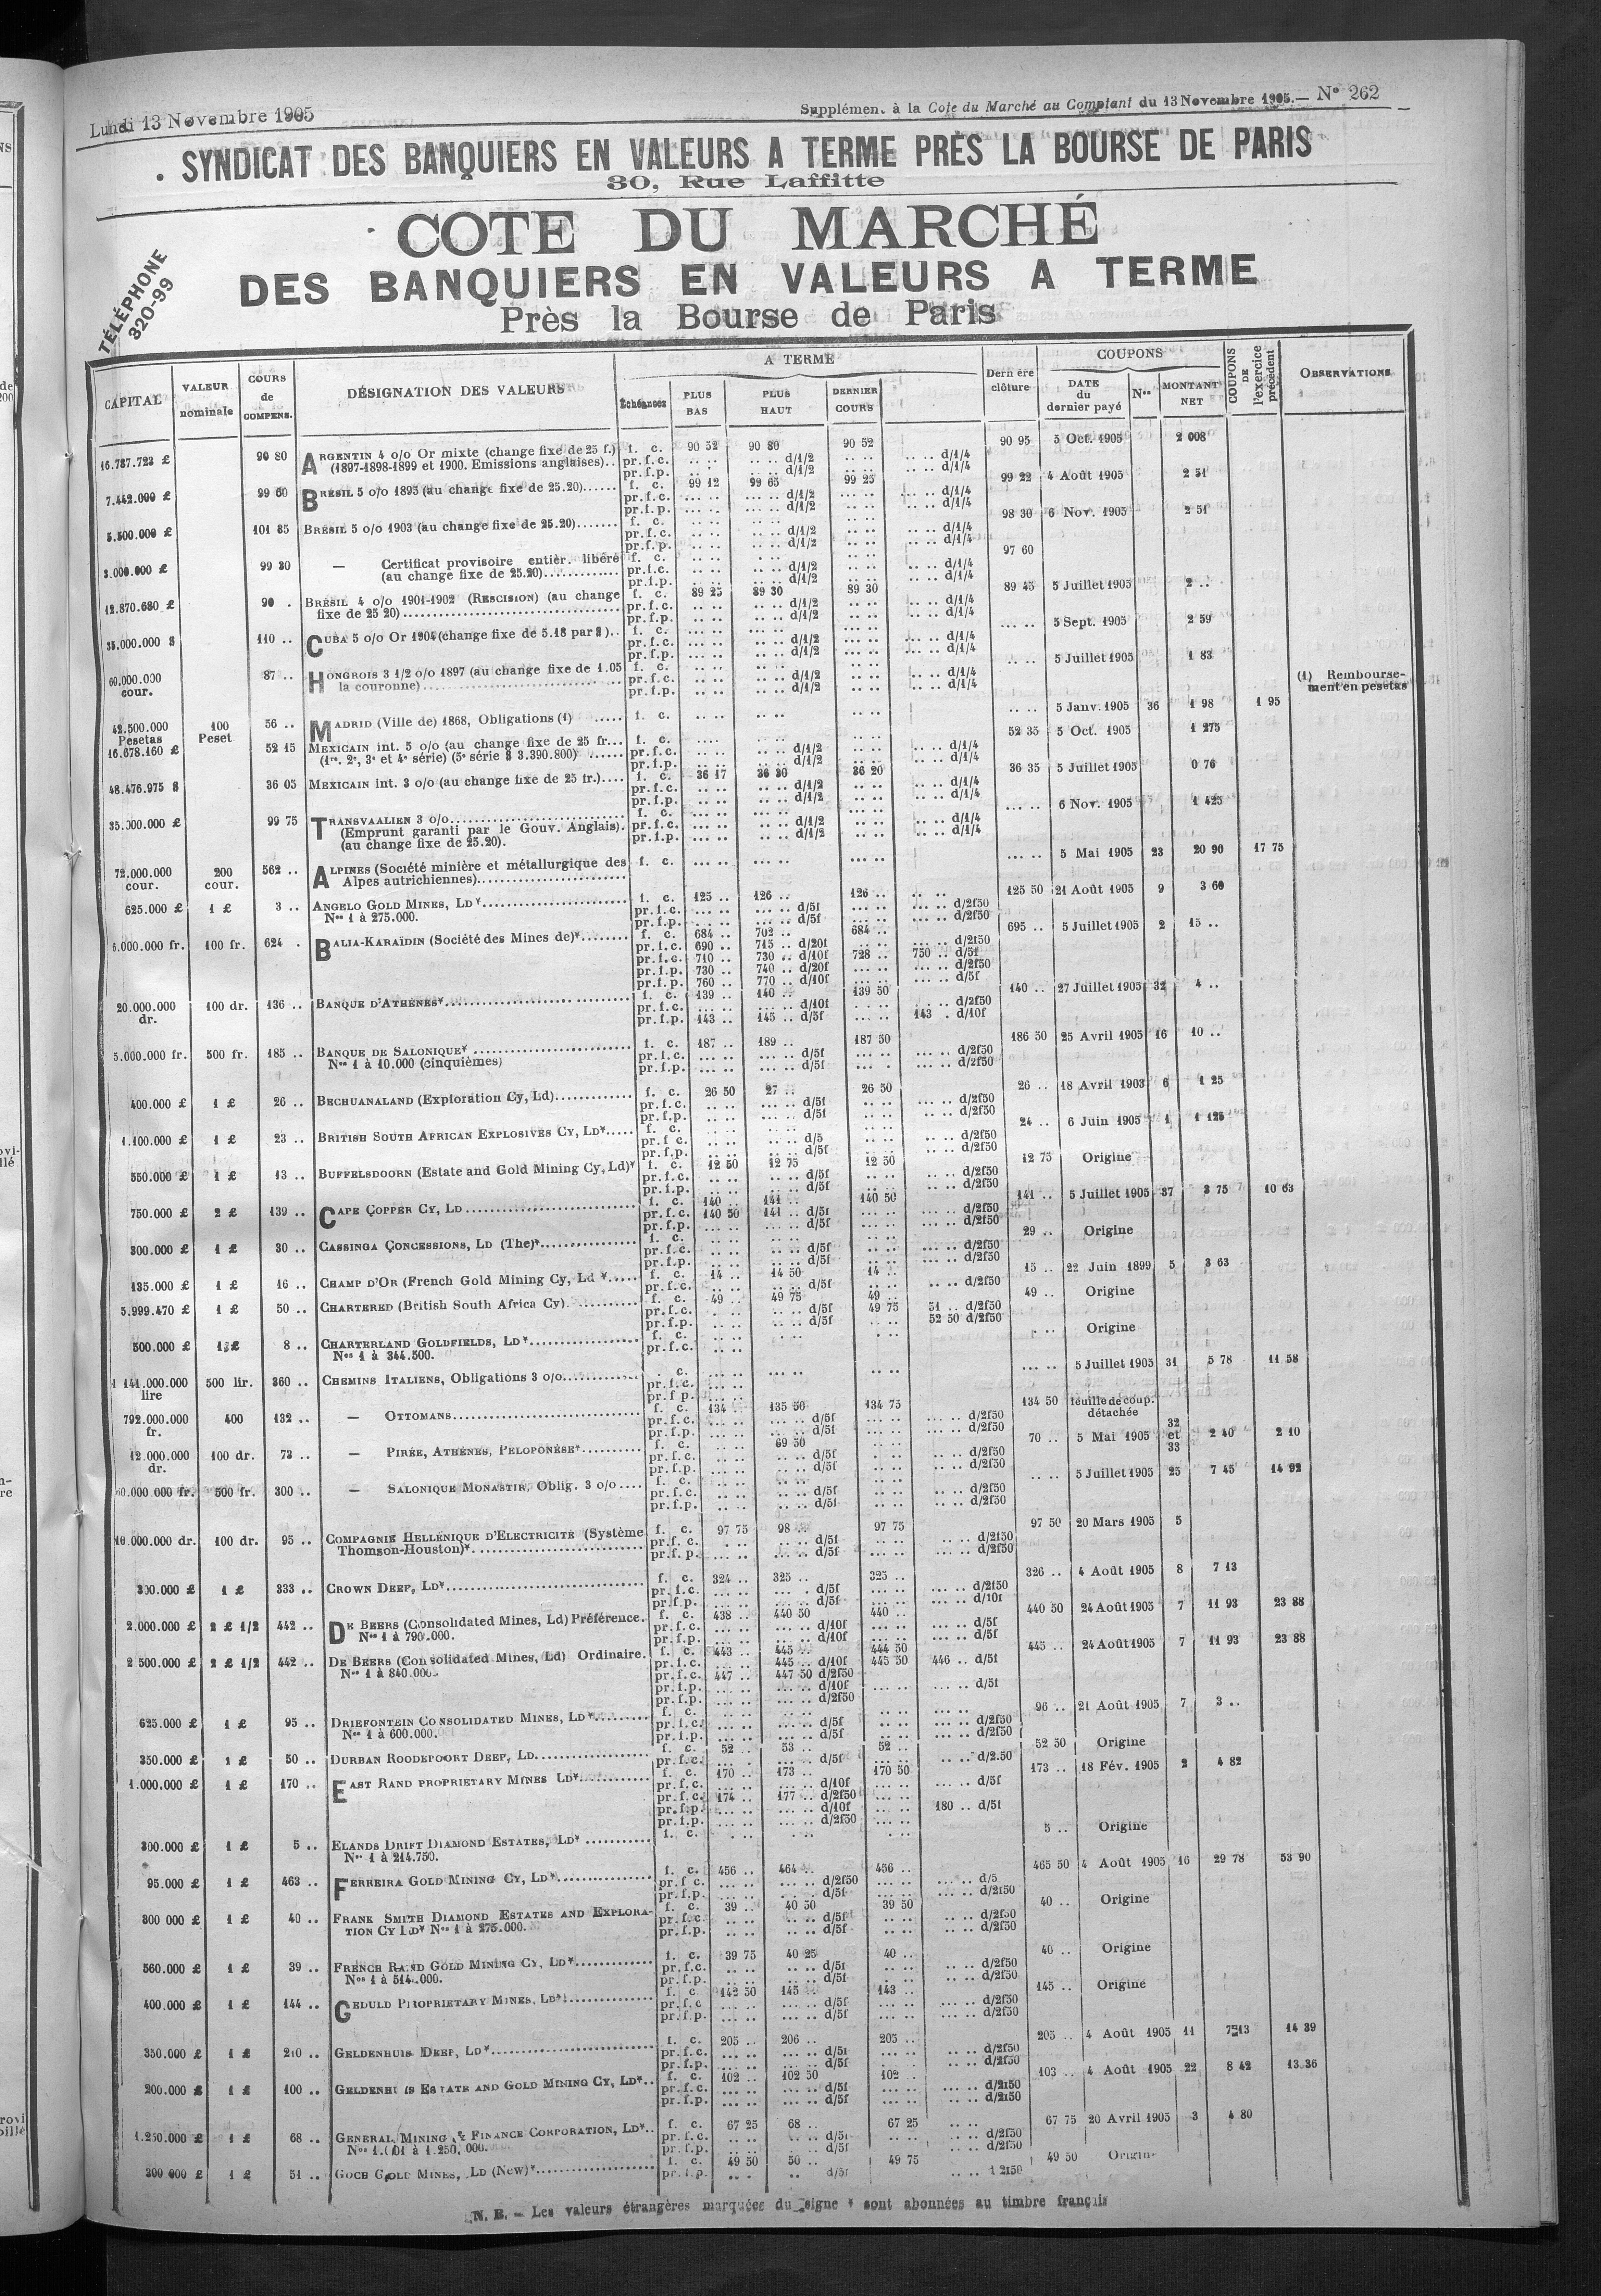 Lundi 13 Novembre 1905
Supplémen. à la Cote du Marché au Comptant du 13 Novembre 1905.— N° 262
SYNDICAT DES BANQUIERS EN VALEURS A TERME PRÈS LA BOURSE DE PARIS
30, Rue Laffitte
TÉLÉPHONE
320-99
COTE DU MARCHÉ
DES BANQUIERS EN VALEURS A TERME
Près la Bourse de Paris
CAPITAL VALEUR nominale COURS de COMPENS. DÉSIGNATION DES VALEURS A TERME Échéances PLUS BAS PLUS HAUT DERNIER COURS Dern ère clôture COUPONS DATE du dernier payé Nos MONTANT NET COUPONS DE l'exercice précédent OBSERVATIONS
16.787.723 £ 90 80 ARGENTIN 4 o/o Or mixte (change fixe de 25 f.) f. c. 90 52 90 80 90 52 90 95 5 Oct. 1905 2 008
(1897-1898-1899 et 1900. Emissions anglaises).. pr.f.c. .. .. .. .. d/1/2 .. .. .. .. d/1/4
pr.f.p. .. .. .. .. d/1/2 .. .. .. .. d/1/4
7.442.000 £ 99 60 BRÉSIL 5 o/o 1895 (au change fixe de 25.20)...... f. c. 99 12 99 65 99 25 99 22 4 Août 1905 2 51
pr.f.c. ... .. ... .. d/1/2 ... .. ... .. d/1/4
pr.f.p. ... .. ... .. d/1/2 ... .. ... .. d/1/4
5.500.000 £ 101 85 BRÉSIL 5 o/o 1903 (au change fixe de 25.20)....... f. c. .. .. .. .. .. .. 98 30 6 Nov. 1905 2 51
pr.f.c. .. .. .. .. d/1/2 .. .. .. .. d/1/4
pr.f.p. .. .. .. .. d/1/2 .. .. .. .. d/1/4
3.000.000 £ 99 30 — Certificat provisoire entièr. libéré f. c. .. .. .. .. .. .. 97 60
(au change fixe de 25.20)............ pr.f.c. .. .. .. .. d/1/2 .. .. .. .. d/1/4
pr.f.p. .. .. .. .. d/1/2 .. .. .. .. d/1/4
12.870.680 £ 90 . BRÉSIL 4 o/o 1901-1902 (RESCISION) (au change f. c. 89 25 89 30 89 30 89 45 5 Juillet 1905 2 ..
fixe de 25 20) pr.f.c. .. .. .. .. d/1/2 .. .. .. .. d/1/4
pr.f.p. .. .. .. .. d/1/2 .. .. .. .. d/1/4
35.000.000 $ 110 .. CUBA 5 o/o Or 1904 (change fixe de 5.18 par $).. f. c. ... .. ... .. ... .. ... .. 5 Sept. 1905 2 59
pr.f.c. ... .. .. .. d/1/2 ... .. ... .. d/1/4
pr.f.p. ... .. .. .. d/1/2 ... .. ... .. d/1/4
60.000.000 cour. 87 .. HONGROIS 3 1/2 o/o 1897 (au change fixe de 1.05 f. c. .. .. .. .. .. .. .. .. 5 Juillet 1905 1 83
la couronne) pr.f.c. .. .. .. .. d/1/2 .. .. .. .. d/1/4
pr.f.p. .. .. .. .. d/1/2 .. .. .. .. d/1/4
(1) Rembourse-
ment en pesetas
42.500.000 Pesetas 100 Peset 56 .. MADRID (Ville de) 1868, Obligations (1) ..... f. c. .. .. .. .. .. .. .. .. 5 Janv. 1905 36 1 98 1 95
16.678.160 £ 52 15 MEXICAIN int. 5 o/o (au change fixe de 25 fr... f. c. .. .. 52 35 5 Oct. 1905 1 275
(1re. 2e, 3e et 4e série) (5e série $ 3.390.800) ...... pr.f.c. .. .. .. .. d/1/2 .. .. .. .. d/1/4
pr.f.p. .. .. .. .. d/1/2 .. .. .. .. d/1/4
48.476.975 $ 36 05 MEXICAIN int. 3 o/o (au change fixe de 25 fr.).... f. c. 36 17 36 30 36 20 36 35 5 Juillet 1905 0 76
pr.f.c. .. .. .. .. d/1/2 .. .. .. .. d/1/4
pr.f.p. .. .. .. .. d/1/2 .. .. .. .. d/1/4
35.000.000 £ 99 75 TRANSVAALIEN 3 o/o f. c. ... .. ... .. 6 Nov. 1905 1 425
(Emprunt garanti par le Gouv. Anglais). pr.f.c. ... .. .. .. d/1/2 .. .. .. .. d/1/4
(au change fixe de 25.20). pr.f.p. ... .. .. .. d/1/2 .. .. .. .. d/1/4
72.000.000 cour. 200 cour. 562 .. ALPINES (Société minière et métallurgique des f. c. ... .. ... .. ... .. ... .. 5 Mai 1905 23 20 90 17 75
Alpes autrichiennes)
625.000 £ 1 £ 3 .. ANGELO GOLD MINES, LD* f. c. 125 .. 126 .. 126 .. 125 50 21 Août 1905 9 3 60
Nos 1 à 275.000. pr.f.c. ... .. ... .. d/5f ... .. ... .. d/2f50
pr.f.p. ... .. ... .. d/5f ... .. ... .. d/2f50
6.000.000 fr. 100 fr. 624 . BALIA-KARAÏDIN (Société des Mines de)* f. c. 684 .. 702 .. 684 .. 695 .. 5 Juillet 1905 2 15 ..
pr.f.c. 690 .. 715 .. d/20f .. .. ... .. d/2f50
pr.f.c. 710 .. 730 .. d/10f 728 .. 750 .. d/5f
pr.f.p. 730 .. 740 .. d/20f ... .. ... .. d/2f50
pr.f.p. 760 .. 770 .. d/10f ... .. ... .. d/5f
20.000.000 dr. 100 dr. 136 .. BANQUE D'ATHÈNES* f. c. 139 .. 140 .. 139 50 140 .. 27 Juillet 1905 32 4 ..
pr.f.c. ... .. ... .. d/10f ... .. ... .. d/2f50
pr.f.p. 143 .. 145 .. d/5f ... .. 143 . d/10f
5.000.000 fr. 500 fr. 185 .. BANQUE DE SALONIQUE* f. c. 187 .. 189 .. 187 50 186 50 25 Avril 1905 16 10 ..
Nos 1 à 10.000 (cinquièmes) pr.f.c. ... .. ... .. d/5f ... .. ... .. d/2f50
pr.f.p. ... .. ... .. d/5f ... . ... .. d/2f50
400.000 £ 1 £ 26 .. BECHUANALAND (Exploration Cy, Ld) f. c. 26 50 27 .. 26 50 26 .. 18 Avril 1903 6 1 25
pr.f.c. .. .. ... .. d/5f .. .. ... .. d/2f50
pr.f.p. .. .. ... .. d/5f .. .. .. .. d/2f50
1.100.000 £ 1 £ 23 .. BRITISH SOUTH AFRICAN EXPLOSIVES CY, LD*..... f. c. .. .. .. .. .. .. 24 .. 6 Juin 1905 1 1 125
pr.f c. .. .. .. .. d/5 .. .. .. .. d/2f50
pr.f.p. .. .. .. .. d/5f .. .. .. .. d/2f50
550.000 £ 1 £ 13 .. BUFFELSDOORN (Estate and Gold Mining Cy, Ld)* f. c. 12 50 12 75 12 50 12 75 Origine
pr.f.c. .. .. .. .. d/5f .. .. .. .. d/2f50
pr.f.p. .. .. .. .. d/5f .. .. .. .. d/2f50
750.000 £ 2 £ 139 .. CAPE COPPER CY, LD f. c. 140 .. 141 .. 140 50 141 .. 5 Juillet 1905 37 3 75 10 63
pr.f.c. 140 50 141 .. d/5f ... .. ... .. d/2f50
pr.f.p. ... .. ... .. d/5f ... .. ... .. d/2f50
300.000 £ 1 £ 30 .. CASSINGA CONCESSIONS, LD (The)* f. c. .. .. .. .. .. .. 29 .. Origine
pr.f.c. .. .. .. .. d/5f .. .. ... .. d/2f50
pr.f.p. .. .. .. .. d/5f .. .. ... .. d/2f50
135.000 £ 1 £ 16 .. CHAMP D'OR (French Gold Mining Cy, Ld *..... f. c. 14 .. 14 50 14 .. 15 .. 22 Juin 1899 5 3 63
pr.f.c. .. .. .. .. d/5f .. .. .. .. d/2f50
5.999.470 £ 1 £ 50 .. CHARTERED (British South Africa Cy) f. c. 49 .. 49 75 49 .. 49 .. Origine
pr.f.c. . .. .. .. d/5f 49 75 51 .. d/2f50
pr.f.p. .. .. .. .. d/5f .. .. 52 50 d/2f50
500.000 £ 1 £ 8 .. CHARTERLAND GOLDFIELDS, LD* f. c. .. .. . .. . .. . .. Origine
Nos 1 à 344.500. pr.f.c. .. ..
1 141.000.000 lire 500 lir. 360 .. CHEMINS ITALIENS, Obligations 3 o/o . c. ... .. ... .. .. .. ... .. 5 Juillet 1905 31 5 78 11 58
pr.f.c. ... ..
pr.f p. ... ..
792.000.000 fr. 400 132 .. — OTTOMANS f. c. 134 .. 135 50 134 75 134 50 feuille de coup. détachée
pr.f.c. ... .. ... .. d/5f ... .. ... .. d/2f50
pr.f.p. ... .. ... .. d/5f ... .. ... .. d/2f50
12.000.000 dr. 100 dr. 73 .. — PIRÉE, ATHÈNES, PÉLOPONÈSE* f. c. .. .. 69 50 .. .. 70 .. 5 Mai 1905 32 et 33 2 40 2 10
pr.f.c. .. .. .. .. d/5f .. .. .. .. d/2f50
pr.f.p. ... .. .. .. d/5f .. .. .. .. d/2f50
60.000.000 fr. 500 fr. 300 .. — SALONIQUE MONASTIR, Oblig. 3 o/o.... f. c. .. .. .. .. .. .. .. .. 5 Juillet 1905 25 7 45 14 92
pr.f.c. .. .. .. .. d/5f .. .. .. .. d/2f50
pr.f.p. .. .. .. .. d/5f .. .. .. .. d/2f50
10.000.000 dr. 100 dr. 95 .. COMPAGNIE HELLÉNIQUE D'ELECTRICITÉ (Système f. c. 97 75 98 .. 97 75 97 50 20 Mars 1905 5
Thomson-Houston)* pr.f.c. . .. .. .. d/5f .. .. .. .. d/2f50
pr.f.p. ... .. ... .. d/5f ... .. ... .. d/2f50
300.000 £ 1 £ 333 .. CROWN DEEP, LD* f. c. 324 .. 325 .. 325 .. 326 .. 4 Août 1905 8 7 13
pr.f.c. ... .. ... . d/5f ... .. ... .. d/2f50
pr.f.p. ... .. ... .. d/5f ... .. ... .. d/10f
2.000.000 £ 2 £ 1/2 442 .. DE BEERS (Consolidated Mines, Ld) Préférence. f. c. 438 .. 440 50 440 .. 440 50 24 Août 1905 7 11 93 23 88
Nos 1 à 790.000. pr.f.c. ... .. ... .. d/10f ... .. ... .. d/5f
pr.f.p. ... .. ... .. d/10f ... .. ... .. d/5f
2 500.000 £ 2 £ 1/2 442 .. DE BEERS (Consolidated Mines, Ld) Ordinaire. f. c. 443 .. 445 .. 444 50 445 .. 24 Août 1905 7 11 93 23 88
Nos 1 à 840.000. pr.f.c. ... .. 445 .. d/10f 445 50 446 .. d/5f
pr.f.c. 447 .. 447 50 d/2f50
pr.f.p. ... .. ... .. d/10f ... .. ... .. d/5f
pr.f.p. ... .. ... .. d/2f50
625.000 £ 1 £ 95 .. DRIEFONTEIN CONSOLIDATED MINES, LD* f. c. ... .. ... .. .. .. 96 .. 21 Août 1905 7 3 ..
Nos 1 à 600.000. pr.f.c. ... .. ... .. d/5f .. .. ... .. d/2f50
pr.f.p. ... .. ... .. d/5f .. .. ... .. d/2f50
350.000 £ 1 £ 50 .. DURBAN ROODEPOORT DEEP, LD f. c. 52 .. 53 .. 52 .. 52 50 Origine
pr.f.c. ... .. ... .. d/5f ... .. .. .. d/2.50
1.000.000 £ 1 £ 170 .. EAST RAND PROPRIETARY MINES LD* f. c. 170 .. 173 .. 170 50 173 .. 18 Fév. 1905 2 4 82
pr.f.c. ... .. ... .. d/10f ... .. ... .. d/5f
pr.f.c. 174 .. 177 .. d/2f50 ... ..
pr.f.p. ... .. ... .. d/10f ... .. 180 .. d/5f
pr.f.p. ... .. ... .. d/2f50 ... ..
300.000 £ 1 £ 5 .. ELANDS DRIFT DIAMOND ESTATES, LD* f. c. . .. .. .. . .. 5 .. Origine
Nos 1 à 214.750.
95.000 £ 1 £ 463 .. FERREIRA GOLD MINING CY, LD* f. c. 456 .. 464 .. 456 .. 465 50 4 Août 1905 16 29 78 53 90
pr.f c. ... .. ... .. d/2f50 ... .. ... .. d/5
pr.f.p. ... .. ... .. d/5f ... .. ... .. d/2f50
300 000 £ 1 £ 40 .. FRANK SMITH DIAMOND ESTATES AND EXPLORA- f. c. 39 .. 40 50 39 50 40 .. Origine
TION CY LD* Nos 1 à 275.000. pr.f.c. .. .. .. .. d/5f .. .. .. .. d/2f50
pr.f.p. .. .. .. .. d/5f .. .. .. .. d/2f50
560.000 £ 1 £ 39 .. FRENCH RAND GOLD MINING CY, LD* f. c. 39 75 40 25 40 .. 40 .. Origine
Nos 1 à 514.000. pr.f.c. .. .. .. .. d/5f .. .. .. .. d/2f50
pr.f.p. .. .. .. .. d/5f . .. .. .. d/2f50
400.000 £ 1 £ 144 .. GEDULD PROPRIETARY MINES, LD* f. c. 142 50 145 .. 143 .. 145 .. Origine
pr.f.c ... .. ... .. d/5f ... .. ... .. d/2f50
pr.f.p. ... .. ... .. d/5f ... .. ... .. d/2f50
350.000 £ 1 £ 210 .. GELDENHUIS DEEP, LD* f. c. 205 .. 206 .. 205 .. 205 .. 4 Août 1905 11 7 13 14 39
pr.f.c. ... .. ... .. d/5f ... .. ... .. d/2f50
pr.f.p. ... .. ... .. d/5f . . ... .. d/2f50
200.000 £ 1 £ 100 .. GELDENHUIS ESTATE AND GOLD MINING CY, LD*.. f. c. 102 .. 102 50 102 .. 103 .. 4 Août 1905 22 8 42 13 36
pr.f.c. ... .. ... .. d/5f ... .. ... .. d/2f50
pr.f.p. ... .. ... .. d/5f ... .. ... .. d/2f50
1.250.000 £ 1 £ 68 .. GENERAL MINING & FINANCE CORPORATION, LD*.. f. c. 67 25 68 .. 67 25 67 75 20 Avril 1905 3 4 80
Nos 1.001 à 1.250.000. pr.f.c. .. .. .. .. d/5f .. .. .. .. d/2f50
pr.f.p. .. .. .. .. d/5f .. .. .. .. d/2f50
200 000 £ 1 £ 51 .. GOCH GOLD MINES, LD (New)* f. c. 49 50 50 .. 49 75 49 50 Origine
pr.f.p. .. . .. d/5f .. .. 2f50
N. B. — Les valeurs étrangères marquées du signe * sont abonnées au timbre français